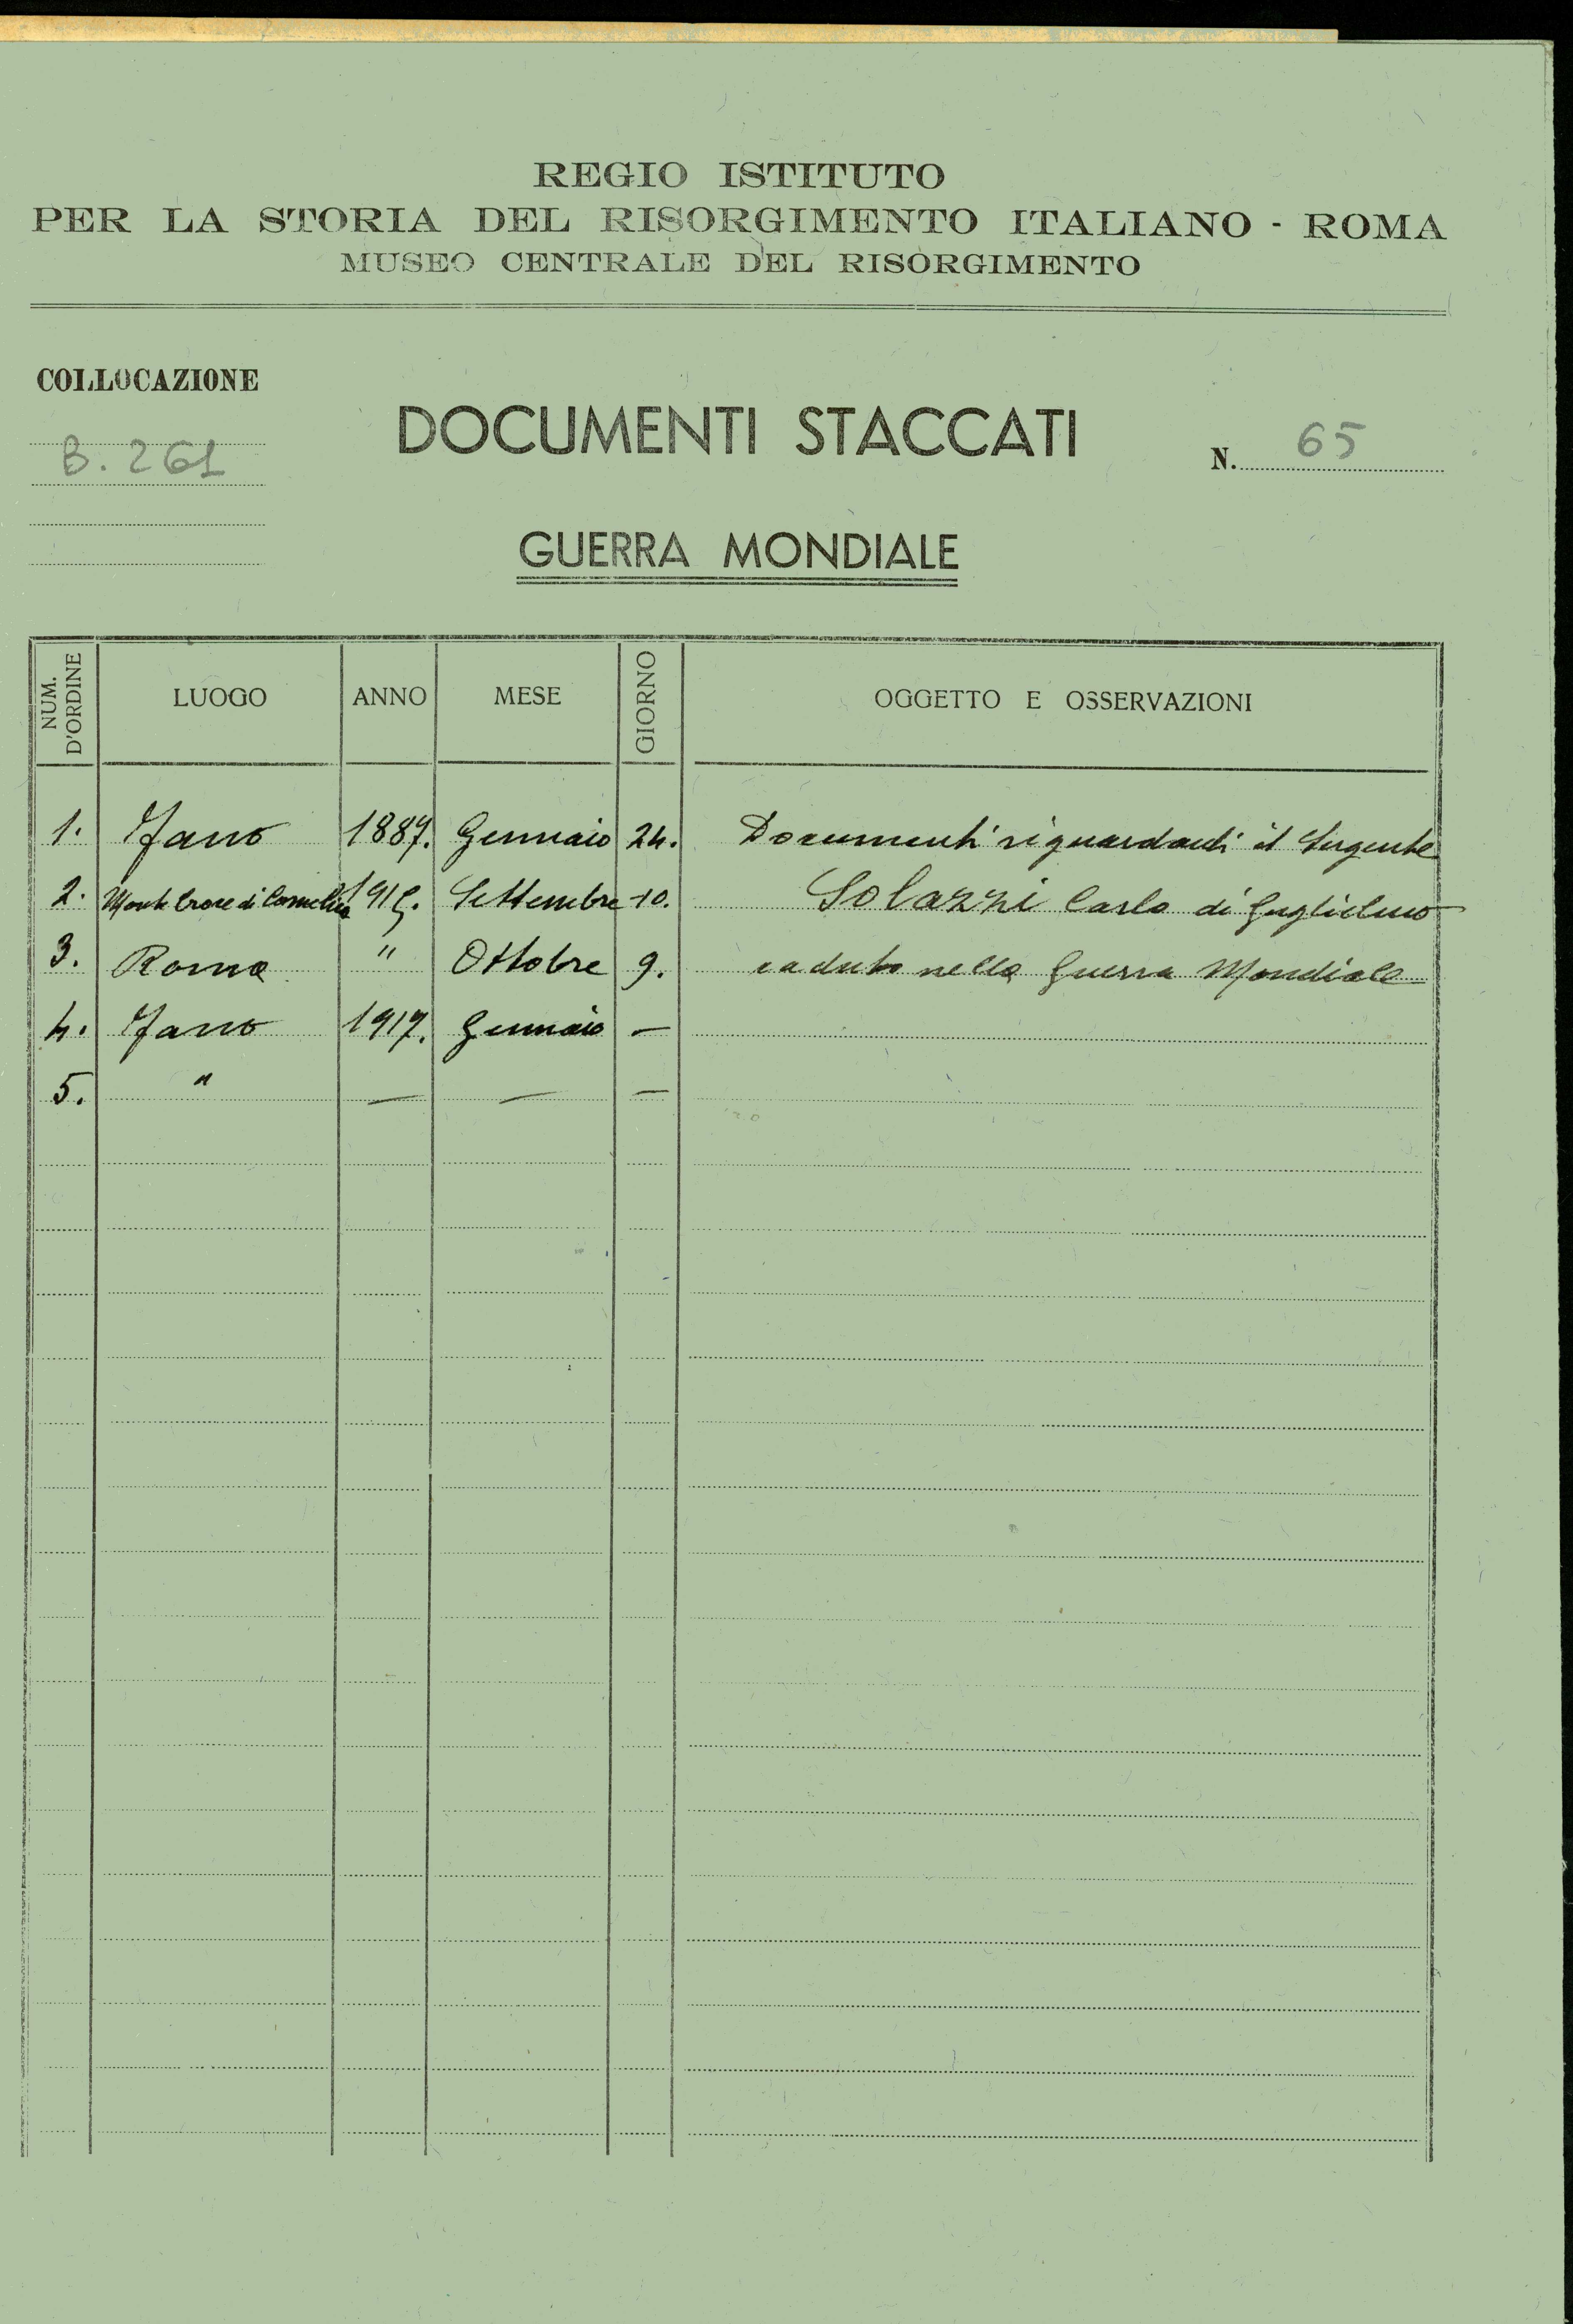 REGIO ISTITUTO
PER LA STORIA DEL RISORGIMENTO ITALIANO - ROMA
MUSEO CENTRALE DEL RISORGIMENTO
COLLOCAZIONE
B. 261
DOCUMENTI STACCATI
N. 65
GUERRA MONDIALE
NUM. D'ORDINE LUOGO ANNO MESE GIORNO OGGETTO E OSSERVAZIONI
1. Fano 1887. Gennaio 24. Documenti riguardanti il Sergente
2. Monte Croce di Comelico 1915. Settembre 10. Solazzi Carlo di Guglielmo
3. Roma " Ottobre 9. caduto nella Guerra Mondiale
4. Fano 1917. Gennaio —
5. " — — —